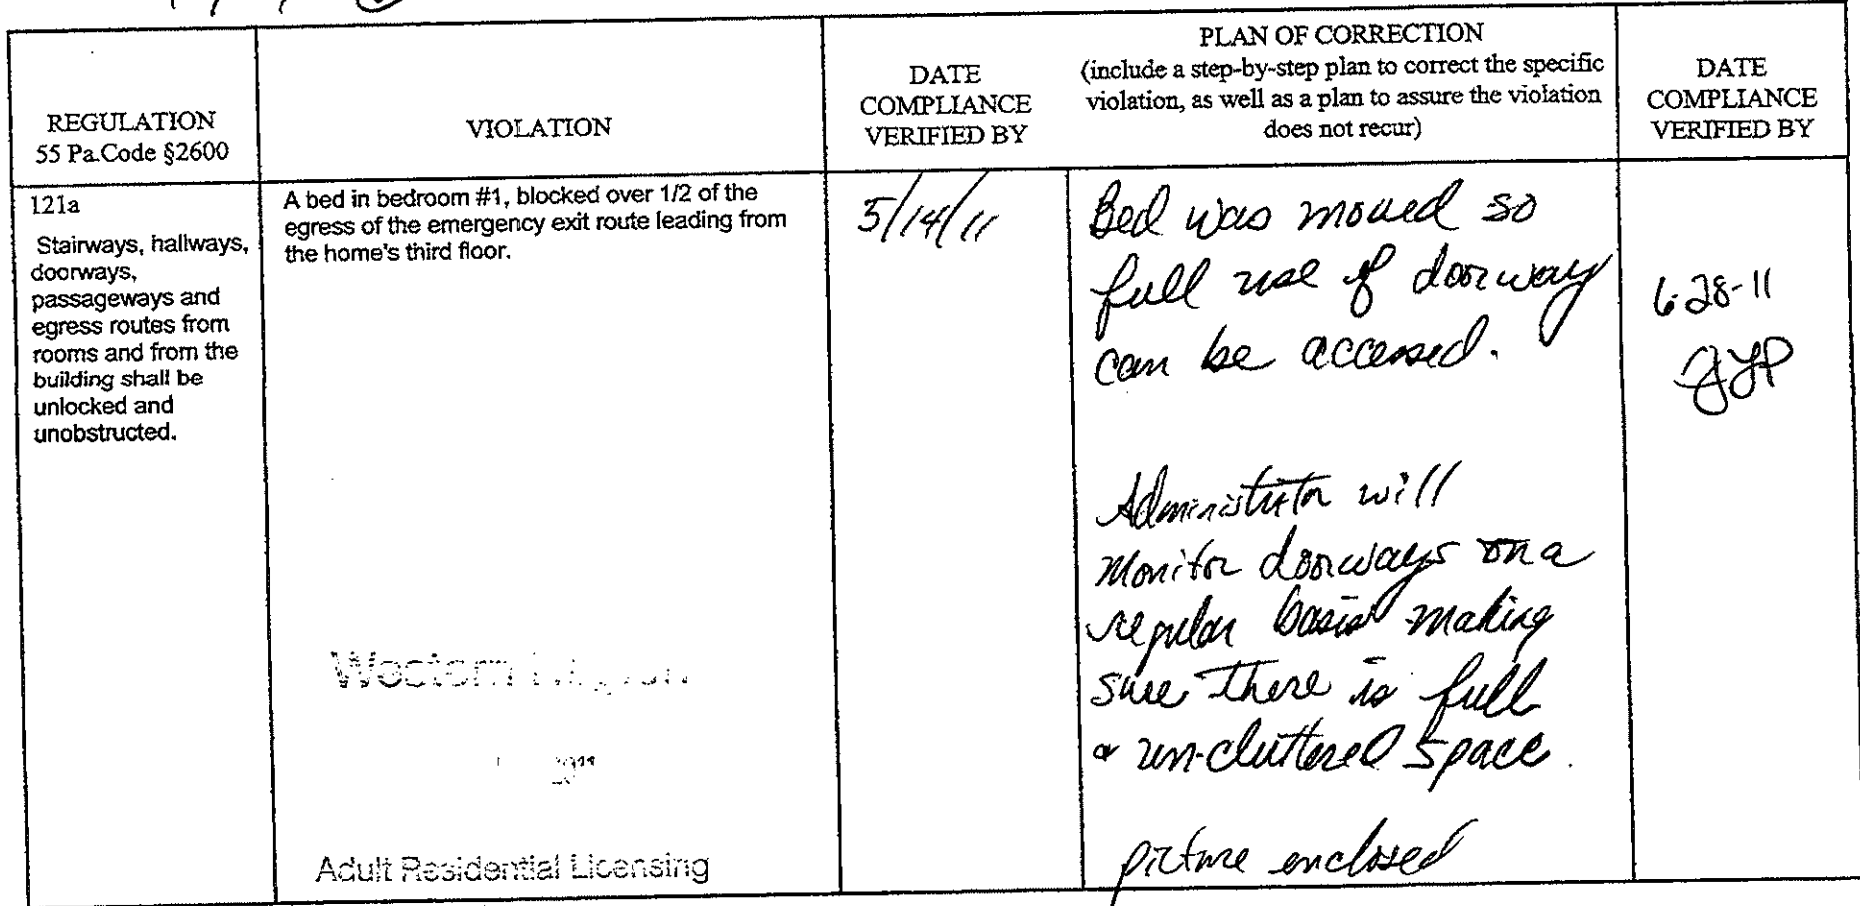 REGULATION
55 Pa.Code §2600
VIOLATION
DATE
COMPLIANCE
VERIFIED BY
PLAN OF CORRECTION
(include a step-by-step plan to correct the specific
violation, as well as a plan to assure the violation
does not recur)
DATE
COMPLIANCE
VERIFIED BY
121a
Stairways, hallways,
doorways,
passageways and
egress routes from
rooms and from the
building shall be
unlocked and
unobstructed.
A bed in bedroom #1, blocked over 1/2 of the
egress of the emergency exit route leading from
the home's third floor.
Western
Adult Residential Licensing
5/14/11
Bed was moved so
full use of doorway
can be accessed.
Administrator will
monitor doorways on a
regular basis making
sure there is full
& un-cluttered space.
picture enclosed
6-28-11